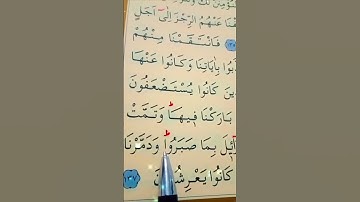 ؤْمِنَنَّ لَكَ وَلَنُرْ
فْنَا عَنْهُمُ الرِّجْزَ اِلٰٓى اَجَلٍ
فَانْتَقَمْنَا مِنْهُمْ
بُوا بِاٰيَاتِنَا وَكَانُوا عَنْهَا
ذ۪ينَ كَانُوا يُسْتَضْعَفُونَ
بَارَكْنَا ف۪يهَاۜ وَتَمَّتْ
أ۪يلَ بِمَا صَبَرُواۜ وَدَمَّرْنَا
كَانُوا يَعْرِشُونَ ١٣٧